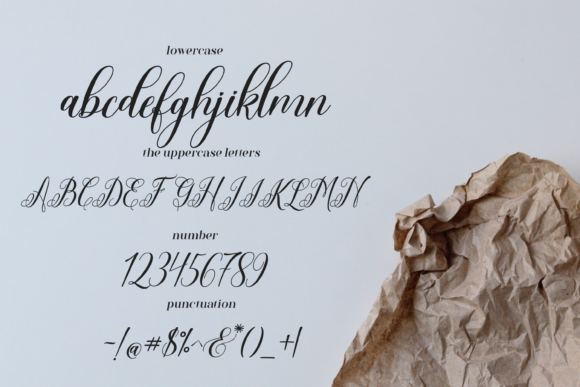 lowercase
abcdefghjiklmn
the uppercase letters
ABCDEFGHJIKLMN
number
123456789
punctuation
~!@#$%^&*()_+|